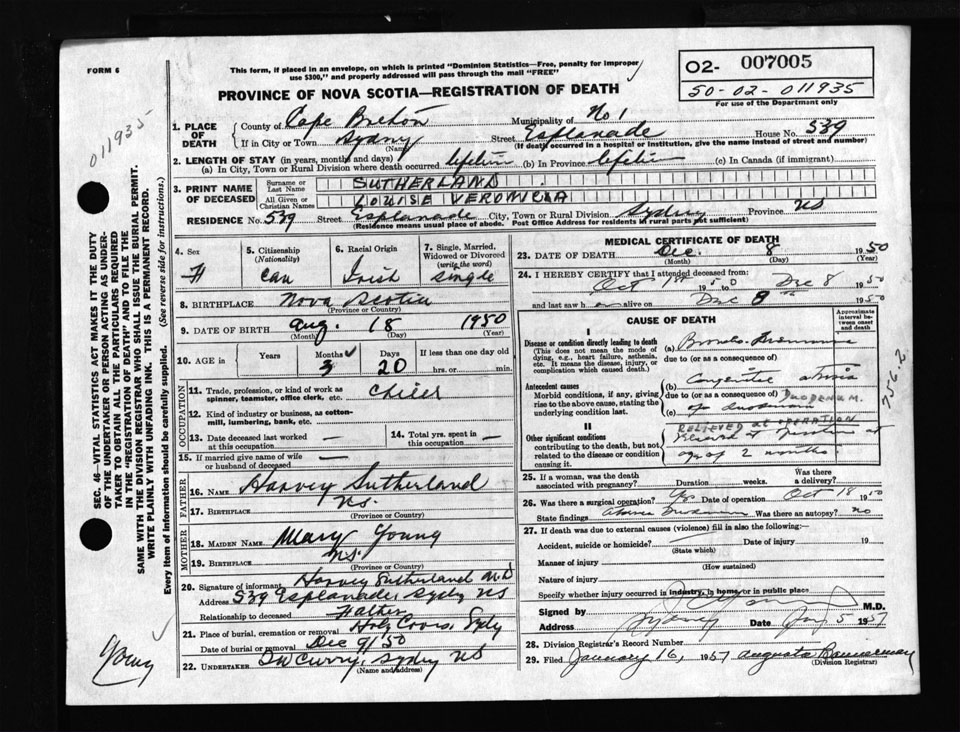 FORM 6
This form, if placed in an envelope, on which is printed "Dominion Statistics—Free, penalty for improper
use $300," and properly addressed will pass through the mail "FREE"
PROVINCE OF NOVA SCOTIA—REGISTRATION OF DEATH
02- 007005
50-02-011935
For use of the Department only
011935
SEC. 46—VITAL STATISTICS ACT MAKES IT THE DUTY
OF THE UNDERTAKER OR PERSON ACTING AS UNDER-
TAKER TO OBTAIN ALL THE PARTICULARS REQUIRED
IN THE "REGISTRATION OF DEATH" AND TO FILE THE
SAME WITH THE DIVISION REGISTRAR WHO SHALL ISSUE THE BURIAL PERMIT.
WRITE PLAINLY WITH UNFADING INK. THIS IS A PERMANENT RECORD.
Every item of Information should be carefully supplied. (See reverse side for instructions.)
1. PLACE OF DEATH County of Cape Breton Municipality of No 1
If in City or Town Sydney Street Esplanade House No. 539
(Name) (If death occurred in a hospital or institution, give the name instead of street and number)
2. LENGTH OF STAY (in years, months and days)
(a) In City, Town or Rural Division where death occurred lifetime (b) In Province lifetime (c) In Canada (if immigrant)
3. PRINT NAME OF DECEASED
Surname or Last Name SUTHERLAND
All Given or Christian Names LOUISE VERONICA
RESIDENCE No. 539 Street Esplanade City, Town or Rural Division Sydney Province NS
(Residence means usual place of abode. Post Office Address for residents in rural parts not sufficient)
4. Sex F
5. Citizenship (Nationality) Can
6. Racial Origin Irish
7. Single, Married, Widowed or Divorced (write the word) single
8. BIRTHPLACE Nova Scotia
(Province or Country)
9. DATE OF BIRTH Aug. 18 1950
(Month) (Day) (Year)
10. AGE in Years Months 3 Days 20 If less than one day old
hrs. or min.
OCCUPATION
11. Trade, profession, or kind of work as
spinner, teamster, office clerk, etc. Child
12. Kind of industry or business, as cotton-
mill, lumbering, bank, etc.
13. Date deceased last worked
at this occupation —
14. Total yrs. spent in
this occupation —
15. If married give name of wife
or husband of deceased —
FATHER
16. NAME Harvey Sutherland
17. BIRTHPLACE NS.
(Province or Country)
MOTHER
18. MAIDEN NAME Mary Young
19. BIRTHPLACE NS.
(Province or Country)
20. Signature of informant Harvey Sutherland M.D
Address 539 Esplanade, Sydney NS
Relationship to deceased Father
21. Place of burial, cremation or removal Holy Cross, Sydney
Date of burial Dec 9/50
22. UNDERTAKER Curry, Sydney NS
(Name and address)
Young
MEDICAL CERTIFICATE OF DEATH
23. DATE OF DEATH Dec. 8 1950
(Month) (Day) (Year)
24. I HEREBY CERTIFY that I attended deceased from:
Oct 1st 1950 Dec 8 1950
and last saw h alive on Dec 8th 1950
CAUSE OF DEATH
Approximate interval between onset and death
I
Disease or condition directly leading to death
(This does not mean the mode of
dying, e.g., heart failure, asthenia,
etc. It means the disease, injury, or
complication which caused death.)
(a) Broncho-Pneumonia
due to (or as a consequence of)
Antecedent causes
Morbid conditions, if any, giving
rise to the above cause, stating the
underlying condition last.
(b) Congenital atresia
due to (or as a consequence of) DUODENUM.
(c) of duodenum
756.2
II
Other significant conditions
contributing to the death, but not
related to the disease or condition
causing it.
RELIEVED at OPERATION
relieved at operation at
age of 2 months.
25. If a woman, was the death
associated with pregnancy? Duration weeks. Was there
a delivery?
26. Was there a surgical operation? Yes Date of operation Oct 18 1950
State findings Atresia Duodenum Was there an autopsy? no
27. If death was due to external causes (violence) fill in also the following:
Accident, suicide or homicide? Date of injury 19
(State which)
Manner of injury
(How sustained)
Nature of injury
Specify whether injury occurred in industry, in home, or in public place
Signed by M.D.
Address Sydney Date Jan 5 1951
28. Division Registrar's Record Number
29. Filed January 16, 1951 Augusta Bannerman
(Division Registrar)